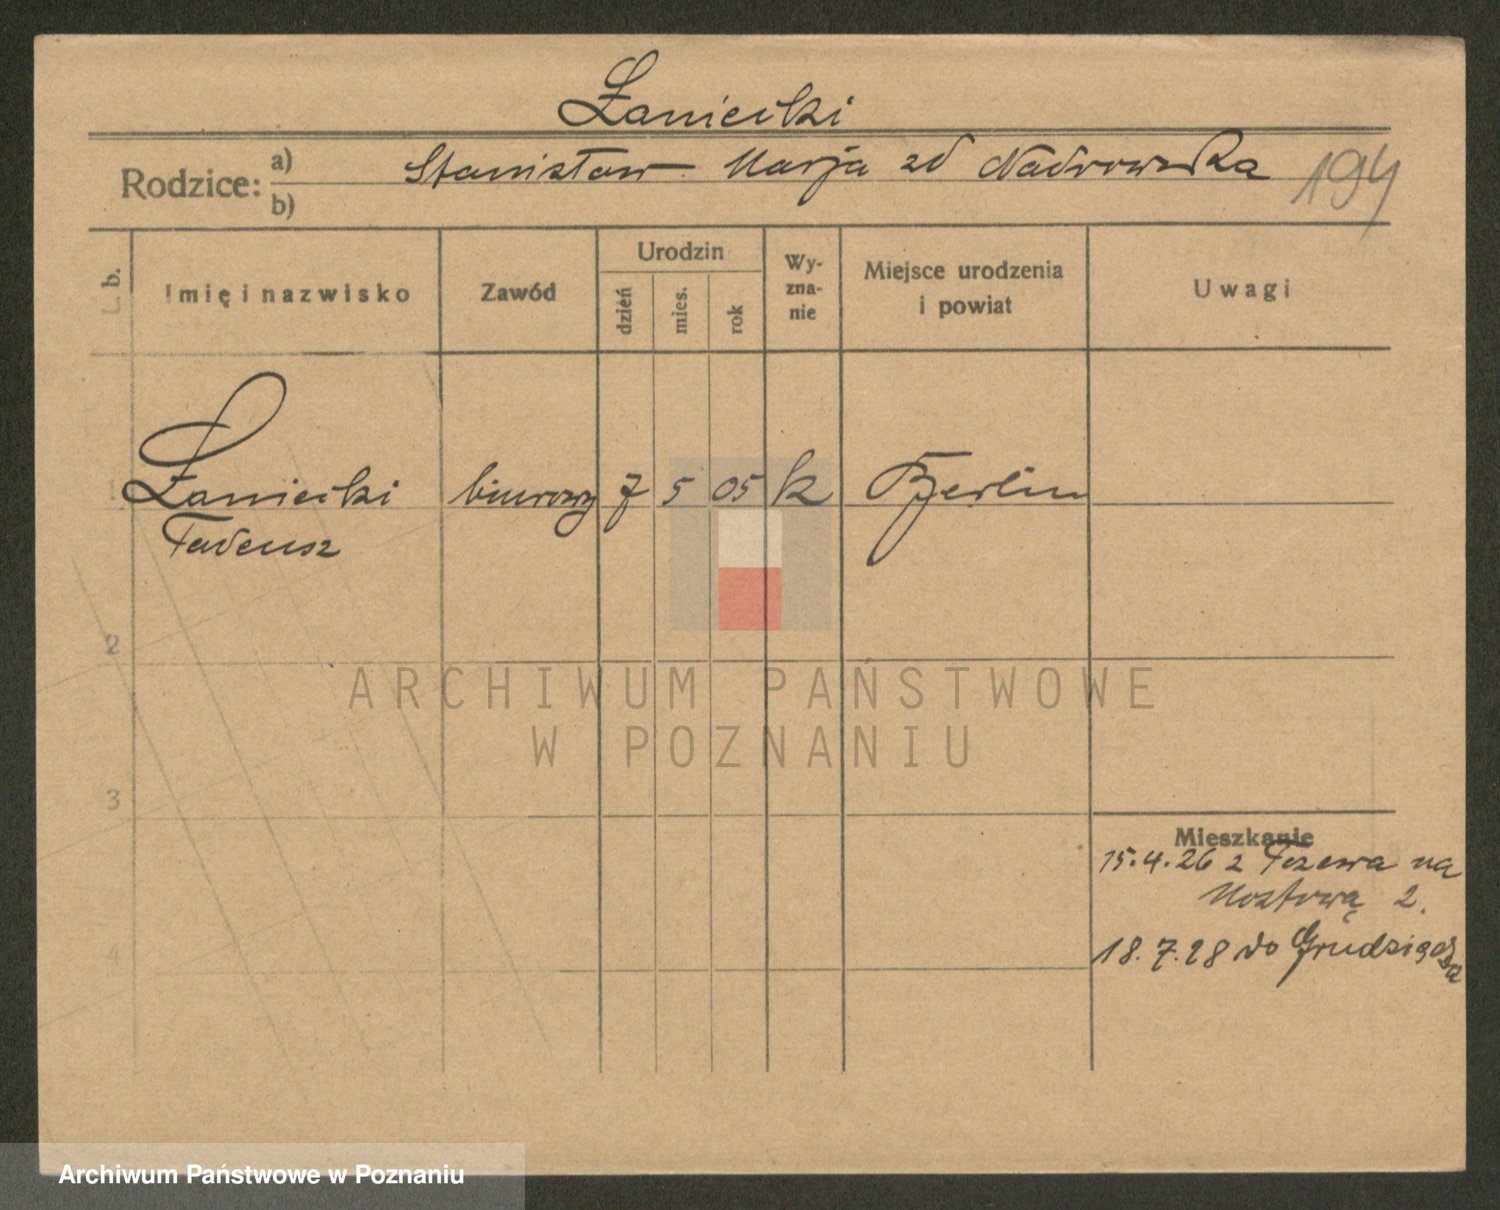 Łaniecki
Rodzice: a) Stanisław Marja zd Nadrowska
b)
194
L. b.
Imię i nazwisko
Zawód
Urodzin
dzień
mies.
rok
Wy-
zna-
nie
Miejsce urodzenia
i powiat
Uwagi
1 Łaniecki biurowy 7 5 05 k Berlin
Tadeusz
2
3
4
Mieszkanie
15.4.26 z Tczewa na
Mostową 2.
18.7.28 do Grudziądza
ARCHIWUM PAŃSTWOWE
W POZNANIU
Archiwum Państwowe w Poznaniu